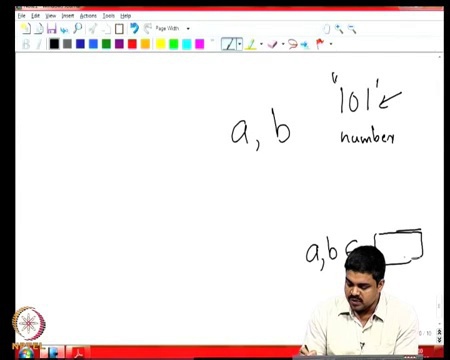 File Edit View Insert Actions Tools Help
Page Width
"101"
a, b
number
a, b ∈